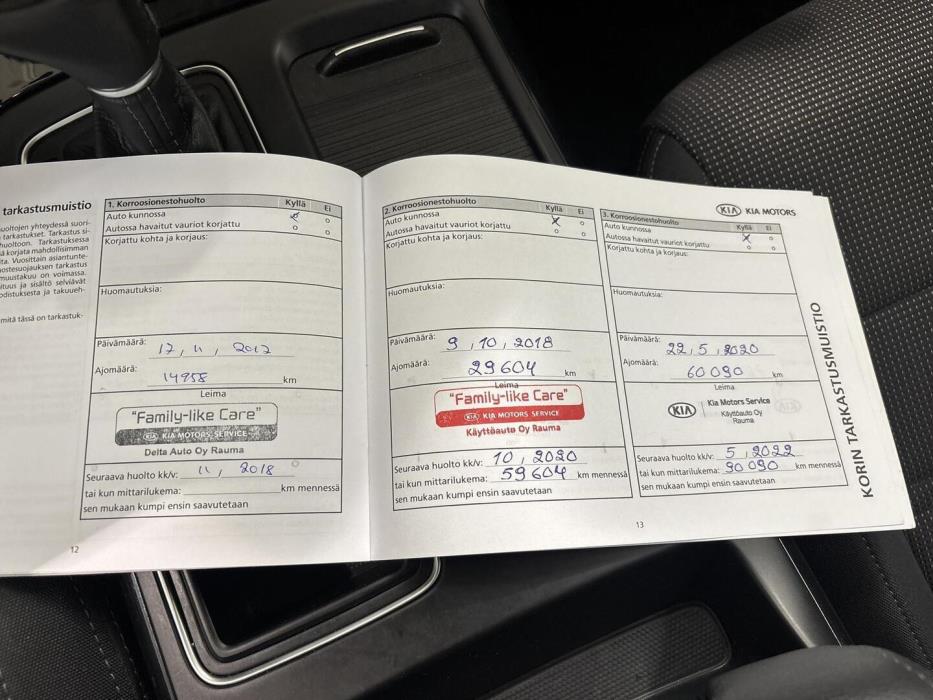 tarkastusmuistio
uoltojen yhteydessä suori-
tarkastukset. Tarkastus si-
huoltoon. Tarkastuksessa
ä korjata mahdollisimman
ita. Vuosittain asiantunte-
ostesuojauksen tarkastus
muustakuu on voimassa.
ituus ja sisältö selviävät
odistuksesta ja takuueh-
mitä tässä on tarkastuk-
1. Korroosionestohuolto Kyllä Ei
Auto kunnossa
Autossa havaitut vauriot korjattu
Korjattu kohta ja korjaus:
Huomautuksia:
Päivämäärä: 17, 11, 2017
Ajomäärä: 14958 km
Leima
"Family-like Care"
KIA MOTORS SERVICE
Delta Auto Oy Rauma
Seuraava huolto kk/v: 11, 2018
tai kun mittarilukema: km mennessä
sen mukaan kumpi ensin saavutetaan
12
2. Korroosionestohuolto Kyllä Ei
Auto kunnossa
Autossa havaitut vauriot korjattu
Korjattu kohta ja korjaus:
Huomautuksia:
Päivämäärä: 9, 10, 2018
Ajomäärä: 29604 km
Leima
"Family-like Care"
KIA MOTORS SERVICE
Käyttöauto Oy Rauma
Seuraava huolto kk/v: 10, 2020
tai kun mittarilukema: 59604 km mennessä
sen mukaan kumpi ensin saavutetaan
KIA KIA MOTORS
3. Korroosionestohuolto Kyllä Ei
Auto kunnossa
Autossa havaitut vauriot korjattu
Korjattu kohta ja korjaus:
Huomautuksia:
Päivämäärä: 22, 5, 2020
Ajomäärä: 60090 km
Leima
KIA Kia Motors Service
Käyttöauto Oy
Rauma
Seuraava huolto kk/v: 5, 2022
tai kun mittarilukema: 90090 km mennessä
sen mukaan kumpi ensin saavutetaan
13
KORIN TARKASTUSMUISTIO